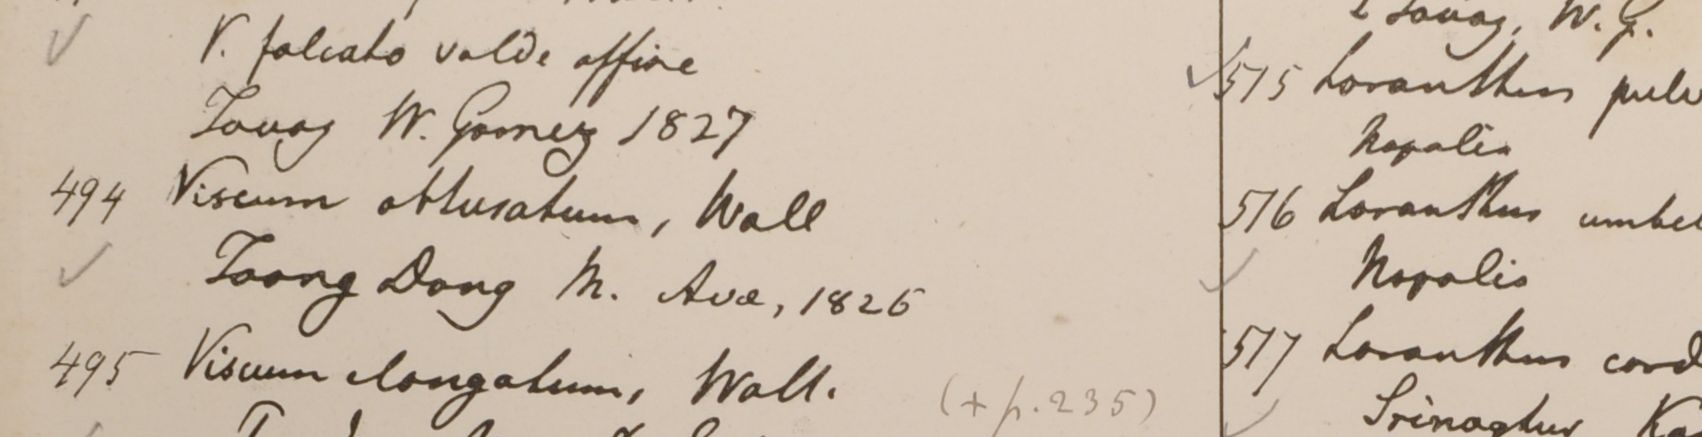 V. falcato valde affine
Tavoy W. Gomez 1827
494 Viscum obtusatum, Wall
Taong Dong M. Avae, 1826
495 Viscum elongatum, Wall.
(+ p. 235)
Tavoy, W. G.
515 Loranthus pulv
Napalia
516 Loranthus umbel
Napalia
517 Loranthus cord
Srinaghur Ka